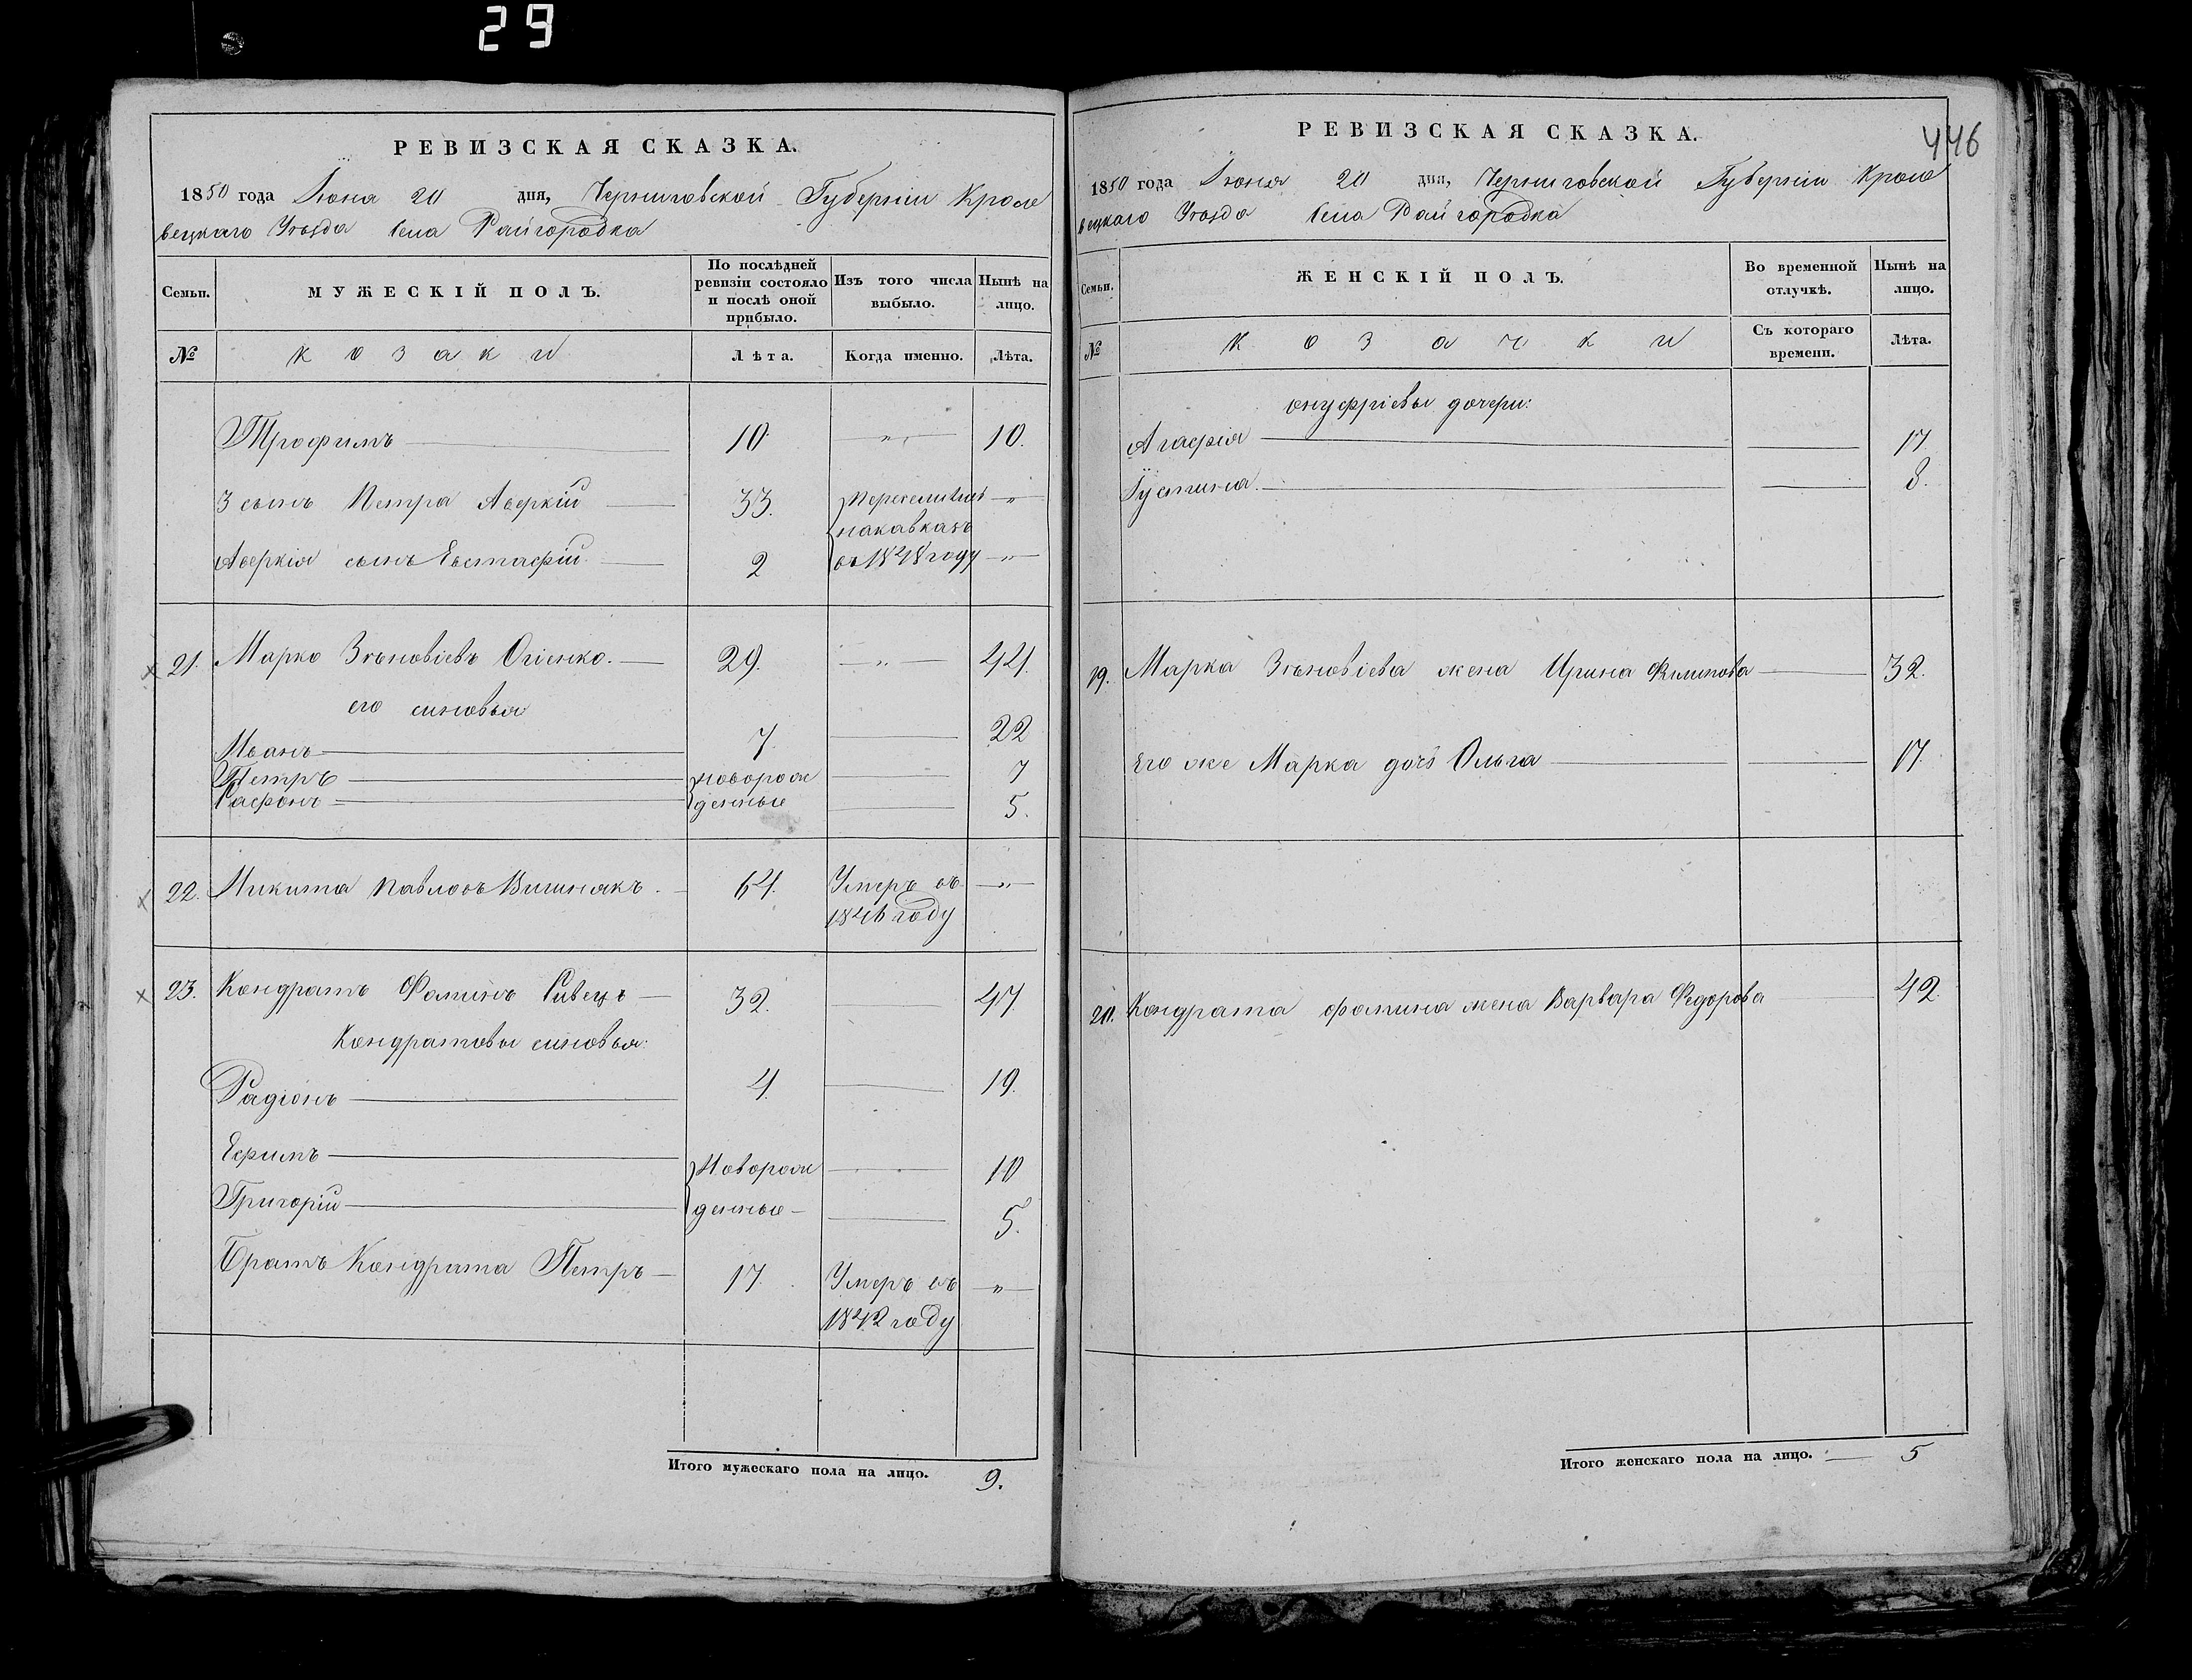 29
РЕВИЗСКАЯ СКАЗКА.
1850 года Июня 20 дня, Черниговской Губерніи Кроле
вецкаго Уѣзда Села Райгородка
Семьи.
МУЖЕСКІЙ ПОЛЪ.
По послѣдней ревизіи состояло и послѣ оной прибыло.
Изъ того числа выбыло.
Нынѣ на лицо.
№
козаки
Лѣта.
Когда именно.
Лѣта.
Трофимъ 10. „ 10.
3 сынъ Петра Аверкій 33. „
Аверкія сынъ Евстафій 2 въ 1848 году „
21. Марко Зѣновіевъ Огіенко. 29. „ 44.
его синовья
Иванъ 7. 22
Петръ новорож 7
Гафонъ денные 5.
22. Микита Павловъ Вишнякъ. 64. Умеръ въ „
1846 году
23. Кондратъ Фоминъ Сивецъ 32. 47.
Кондратовы синовья:
Радіонъ 4. 19.
Ефимъ Новорож 10
Григорій денные 5.
Братъ Кондрата Петръ 17. Умеръ въ „
1842 году
Итого мужескаго пола на лицо. 9.
446
РЕВИЗСКАЯ СКАЗКА.
1850 года Июня 20 дня, Черниговской Губерніи Кроле
вецкаго Уѣзда Села Райгородка
Семьи.
ЖЕНСКІЙ ПОЛЪ.
Во временной отлучкѣ.
Нынѣ на лицо.
№
козачки
Съ котораго времени.
Лѣта.
онуфріевы дочери:
Агафія 17
Іустина 8.
19. Марка Зѣновіева жена Ирина Филипова 32.
Его же Марка дочь Ольга 17.
20. Кондрата фомина жена Варвара Федорова 42.
Итого женскаго пола на лицо. 5